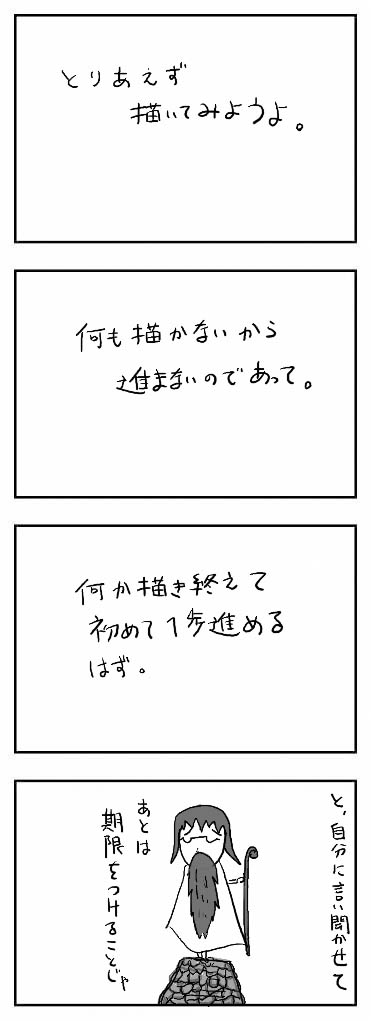 とりあえず
描いてみようよ。
何も描かないから
進まないのであって。
何か描き終えて
初めて1歩進める
はず。
と、自分に言い聞かせて
あとは
期限をつけることじゃ